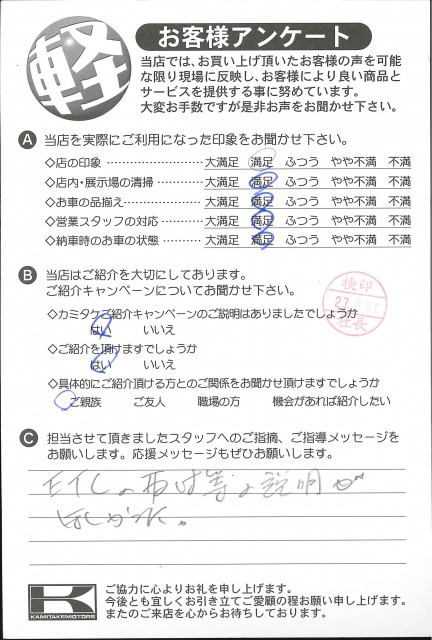 軽
お客様アンケート
当店では、お買い上げ頂いたお客様の声を可能
な限り現場に反映し、お客様により良い商品と
サービスを提供する事に努めています。
大変お手数ですが是非お声をお聞かせ下さい。
A 当店を実際にご利用になった印象をお聞かせ下さい。
◇店の印象 ………………… 大満足 満足 ふつう やや不満 不満
◇店内・展示場の清掃 ………… 大満足 満足 ふつう やや不満 不満
◇お車の品揃え ……………… 大満足 満足 ふつう やや不満 不満
◇営業スタッフの対応 ………… 大満足 満足 ふつう やや不満 不満
◇納車時のお車の状態 ………… 大満足 満足 ふつう やや不満 不満
B 当店はご紹介を大切にしてあります。
ご紹介キャンペーンについてお聞かせ下さい。
検印
社長
◇カミタケご紹介キャンペーンのご説明はありましたでしょうか
はい いいえ
◇ご紹介を頂けますでしょうか
はい いいえ
◇具体的にご紹介頂ける方とのご関係をお聞かせ頂けますでしょうか
ご親族 ご友人 職場の方 機会があれば紹介したい
C 担当させて頂きましたスタッフへのご指摘、ご指導メッセージを
お願いします。応援メッセージもぜひお願いします。
ETCの取付等の説明が
ほしかった。
K
KAMITAKEMOTORS
ご協力に心よりお礼を申し上げます。
今後とも宜しくお引き立てご愛顧の程お願い申し上げます。
またのご来店を心からお待ちしております。